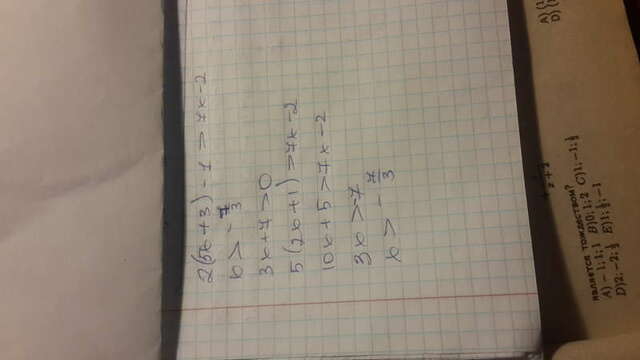 2(5x+3) - 1 > 7x-2
x > - 7/3
3x+7 >0
5(2x+1) >7x-2
10x+5 >7x-2
3x >-7
x > - 7/3
x+2
является тождеством?
A) - 1; 1; 1 B)0; 1; 2 C)1; -1; 1/2
D)2; -2; 1/2 E)1; 1/2; -1
A) (1
D) (